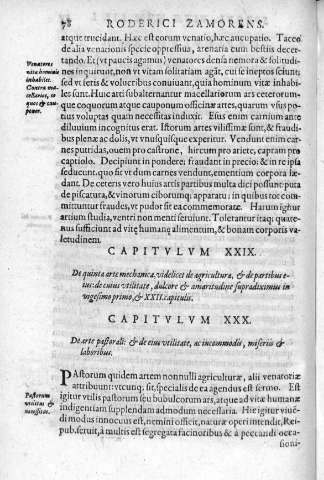 78 RODERICI ZAMORENS.
atque trucidant. Hæc est eorum venatio, hæc aucupatio. Taceo
de alia venationis specie oppressiua, arenaria cum bestiis decer-
tando. Et (vt paucis agamus) venatores densa nemora & solitudi-
Venatores
vita hominū
inhabiles.
Contra ma-
cellarios, co
quos & cau-
pones.
nes inquirunt, non vt vitam solitariam agāt, cui se ineptos sciunt;
sed vt feris & volucribus conuiuant, quia hominum vitæ inhabi-
les sunt. Huic arti subalternantur macellariorum ars ceterorum-
que coquorum atque cauponum officinæ artes, quarum vsus po-
tius voluptas quam necessitas induxit. Esus enim carnium ante
diluuium incognitus erat. Istorum artes vilissimæ sunt, & fraudi-
bus plenæ ac dolis, vt vnusquisque experitur. Vendunt enim car-
nes putridas, ouem pro castrone, hircum pro ariete, capram pro
capriolo. Decipiunt in pondere; fraudant in precio; & in re ipsa
seducunt. quo fit vt dum carnes vendunt, ementium corpora læ-
dant. De ceteris vero huius artis partibus multa dici possunt puta
de piscatura, & vinorum ciborumq; apparatu: in quibus tot com-
mittuntur fraudes, vt pudor sit ea commemorare. Harum igitur
artium studia, ventri non menti seruiunt. Tolerantur itaq; quate-
nus sufficiunt ad vitę humanę alimentum, & bonam corporis va-
letudinem.
CAPITVLVM XXIX.
De quinta arte mechanica. videlicet de agricultura, & de partibus e-
ius: de cuius vtilitate, dulcore & amaritudine supradiximus in
vigesimo primo, & XXII. capitulis.
CAPITVLVM XXX.
De arte pastorali: & de eius vtilitate, ac incommodis, miseriis &
laboribus.
PAstorum quidem artem nonnulli agriculturæ, alii venatoriæ
attribuunt: vtcunq; sit. specialis de ea agendus est sermo. Est
Pastorum
vtilitas &
necessitas.
igitur vtilis pastorum seu bubulcorum ars, atque ad vitæ humanæ
indigentiam supplendam admodum necessaria. Hic igitur viuē-
di modus innocuus est, nemini officit, naturæ operi intendit, Rei-
pub. seruit, à multis est segregata facinoribus & a peccandi occa-
sioni-